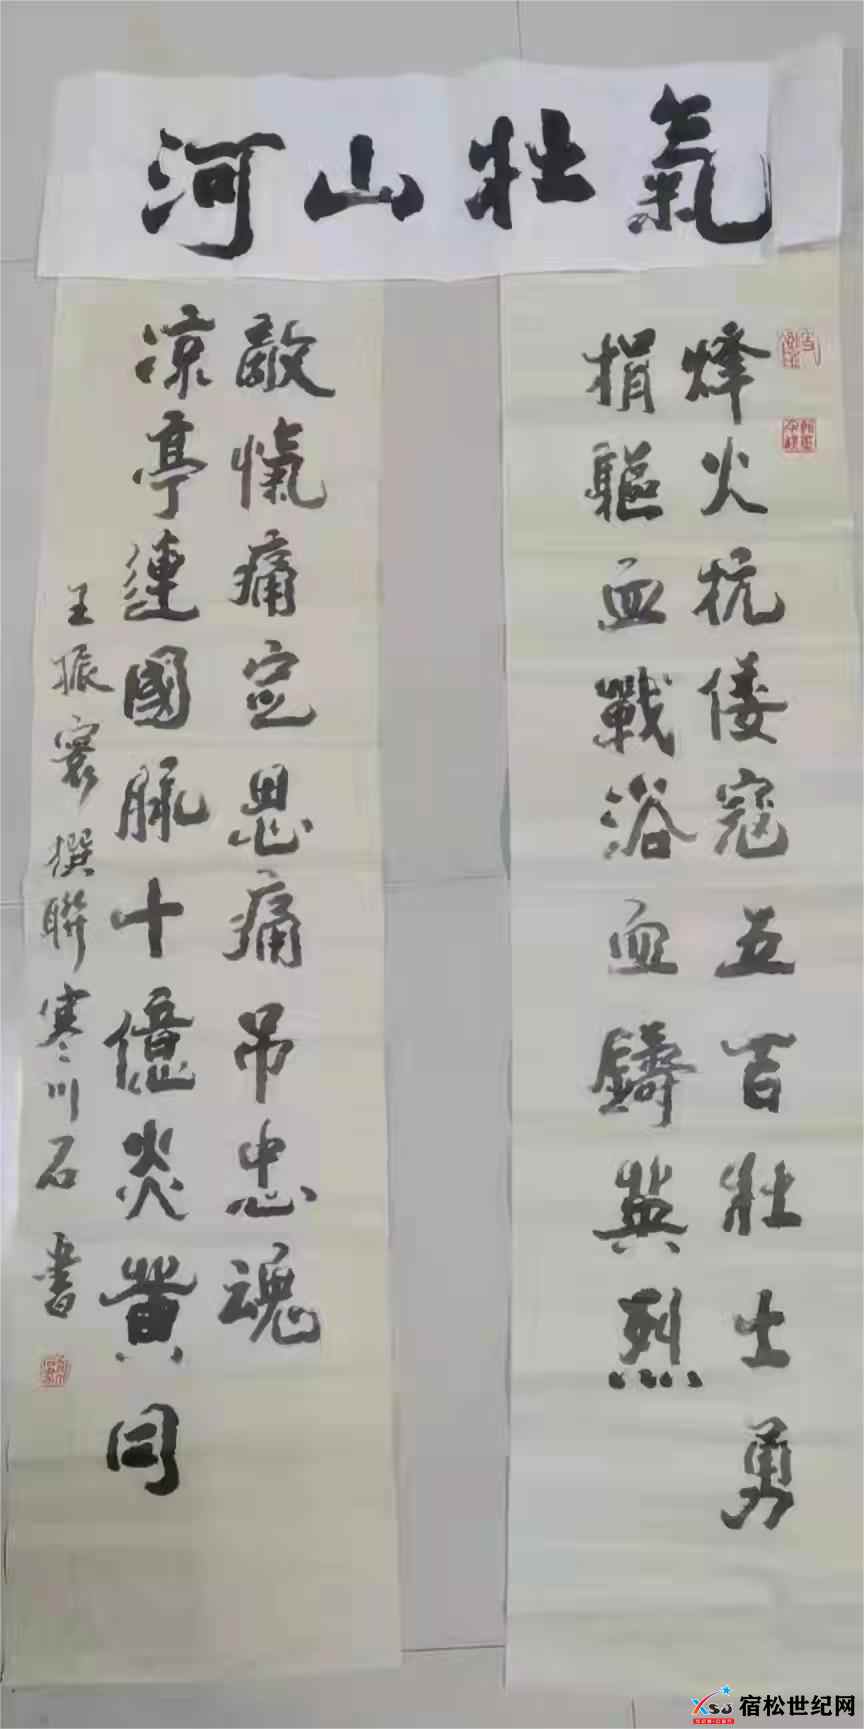 氣壯山河
烽火抗倭寇五百壯士勇
捐軀血戰浴血鑄英烈
凉亭連國脉十億炎黄同
敵愾痛定思痛吊忠魂
王振寰撰聯寒川石書
宿松世纪网